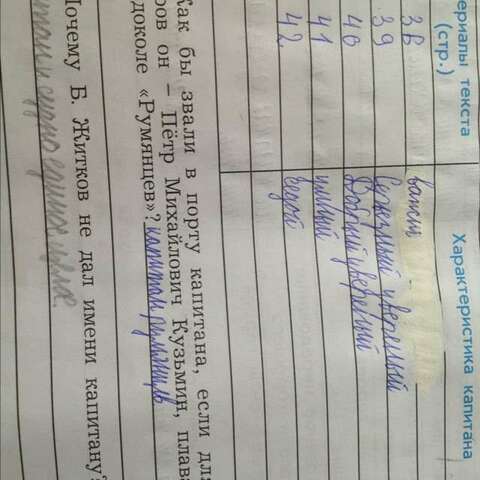 ериалы текста Характеристика капитана
(стр.)
36 важен
39 Серьезный уверенный
40 Добрый уверенный
41 умный
42
Как бы звали в порту капитана, если для
ров он – Пётр Михайлович Кузьмин, плава
доколе «Румянцев»? капитан румянцев
Почему Б. Житков не дал имени капитану?
судно единое целое.